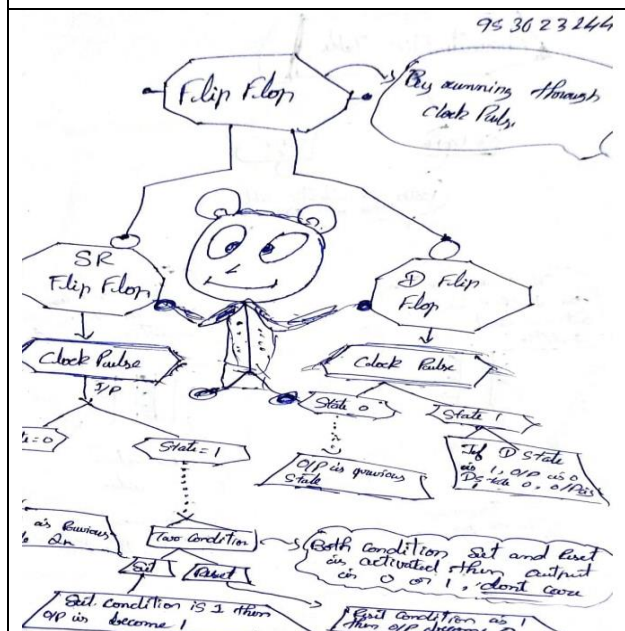 953623244
Flip Flop
By running through
Clock Pulse,
SR
Flip Flop
D Flip
Flop
Clock Pulse
Colock Pulse
I/P
State 0
State 1
=0
State = 1
O/P is previous
State
If D State
is 1, O/P is 0
D State 0, O/P is
as Previous
Two Condition
Both Condition Set and Reset
is activated then output
is 0 or 1, dont care
Set
Reset
Set Condition is 1 then
O/P is become 1
Reset Condition is 1
then O/P become